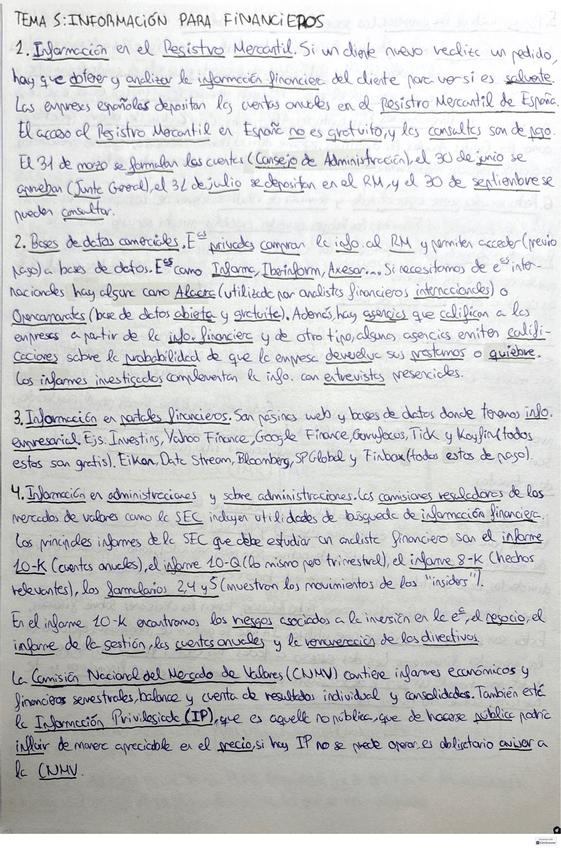 TEMA 5: INFORMACIÓN PARA FINANCIEROS
1. Información en el Registro Mercantil. Si un cliente nuevo realiza un pedido,
hay que obtener y analizar la información financiera del cliente para ver si es solvente.
Las empresas españolas depositan las cuentas anuales en el Registro Mercantil de España.
El acceso al Registro Mercantil en España no es gratuito, y las consultas son de pago.
El 31 de marzo se formulan las cuentas (Consejo de Administración), el 30 de junio se
aprueban (Junta General), el 31 de julio se depositan en el RM, y el 30 de septiembre se
pueden consultar.
2. Bases de datos comerciales. Eᵃˢ privadas compran la info. al RM y permiten acceder (previo
pago) a bases de datos. Eᵃˢ como Informa, Iberinform, Axesor... Si necesitamos de eᵃˢ inter-
nacionales hay alguna como Alacra (utilizada por analistas financieros internacionales) o
Opencorporates (base de datos abierta y gratuita). Además, hay agencias que califican a las
empresas a partir de la info. financiera y de otro tipo, algunas agencias emiten califi-
caciones sobre la probabilidad de que la empresa devuelva sus préstamos o quiebre.
Los informes investigados complementan la info. con entrevistas presenciales.
3. Información en portales financieros. Son páginas web y bases de datos donde tenemos info.
empresarial. Ejs: Investing, Yahoo Finance, Google Finance, Gurufocus, Tick y Koyfin (todos
estos son gratis). Eikon, Data Stream, Bloomberg, SPGlobal y Finbox (todos estos de pago).
4. Información en administraciones y sobre administraciones. Las comisiones reguladoras de los
mercados de valores como la SEC incluyen utilidades de búsqueda de información financiera.
Los principales informes de la SEC que debe estudiar un analista financiero son el informe
10-K (cuentas anuales), el informe 10-Q (lo mismo pero trimestral), el informe 8-K (hechos
relevantes), los formularios 2,4 y 5 (muestran los movimientos de los "insiders").
En el informe 10-K encontramos los riesgos asociados a la inversión en la eᵃ, el negocio, el
informe de la gestión, las cuentas anuales y la remuneración de los directivos.
La Comisión Nacional del Mercado de Valores (CNMV) contiene informes económicos y
financieros semestrales, balance y cuenta de resultados individual y consolidados. También está
la Información Privilegiada (IP), que es aquella no pública, que de hacerse pública podría
influir de manera apreciable en el precio, si hay IP no se puede operar, es obligatorio avisar a
la CNMV.